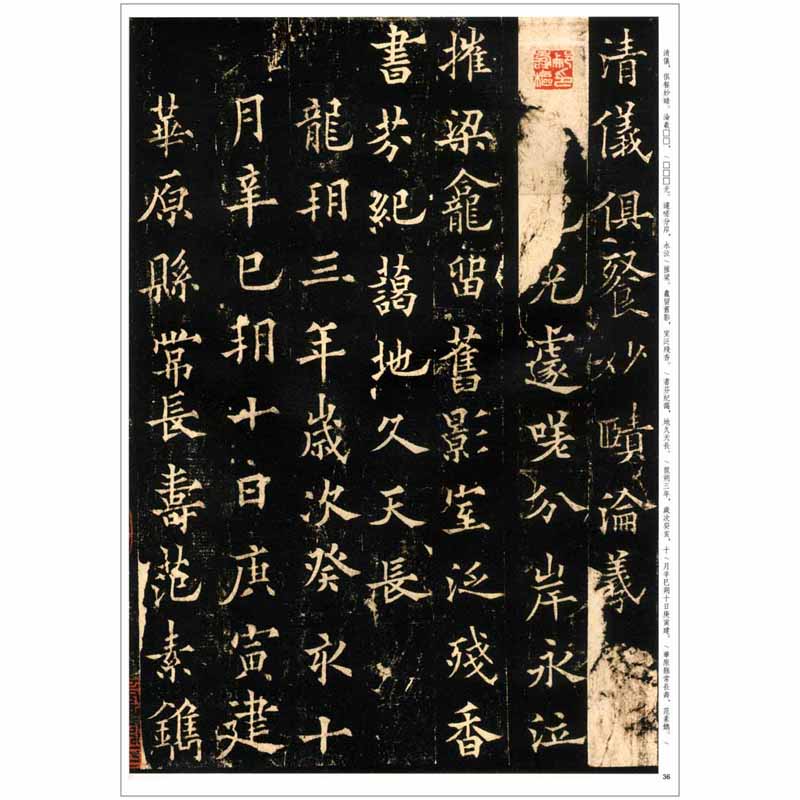 清儀俱餐妙賾淪羲
光遽嗟分岸永泣
摧梁龕留舊影室泛殘香
書芬紀藹地久天長
龍朔三年歲次癸亥十
月辛巳朔十日庚寅建
華原縣常長壽范素鐫
清儀，俱餐妙賾。淪羲□□，／□□□光。遽嗟分岸，永泣／摧梁。龕留舊影，室泛殘香。／書芬紀藹，地久天長。／龍朔三年，歲次癸亥，十／月辛巳朔十日庚寅建。／華原縣常長壽、范素鐫。／
36